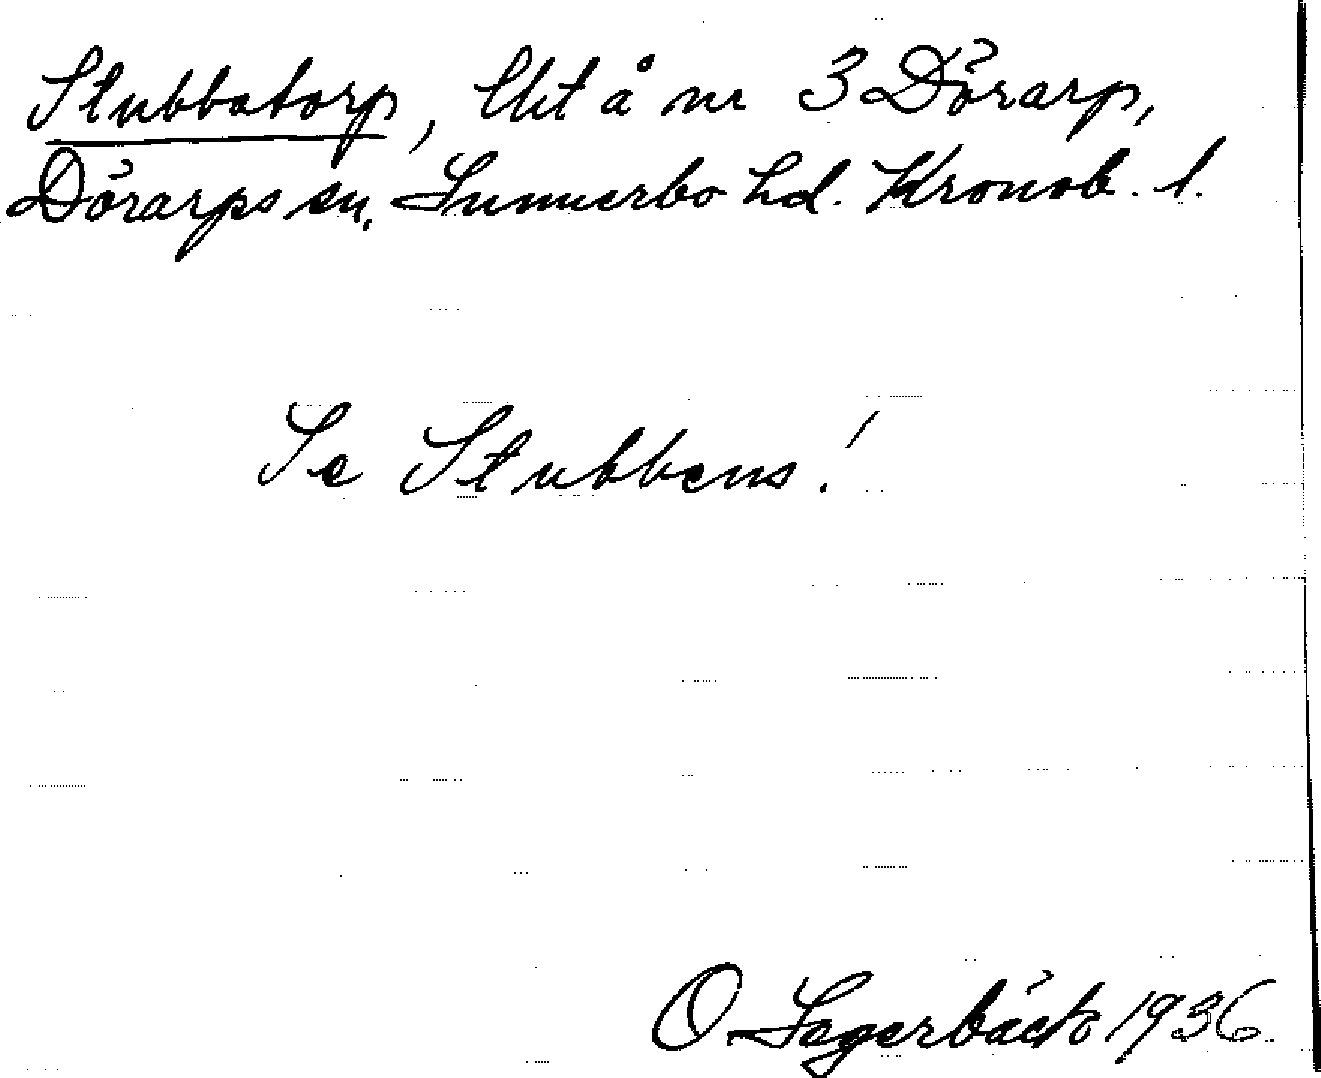 Stubbatorp, lht å nr 3 Dörarp,
Dörarps sn, Sunnerbo hd. Kronob. l.
Se Stubbens!
O. Lagerbäck 1936.